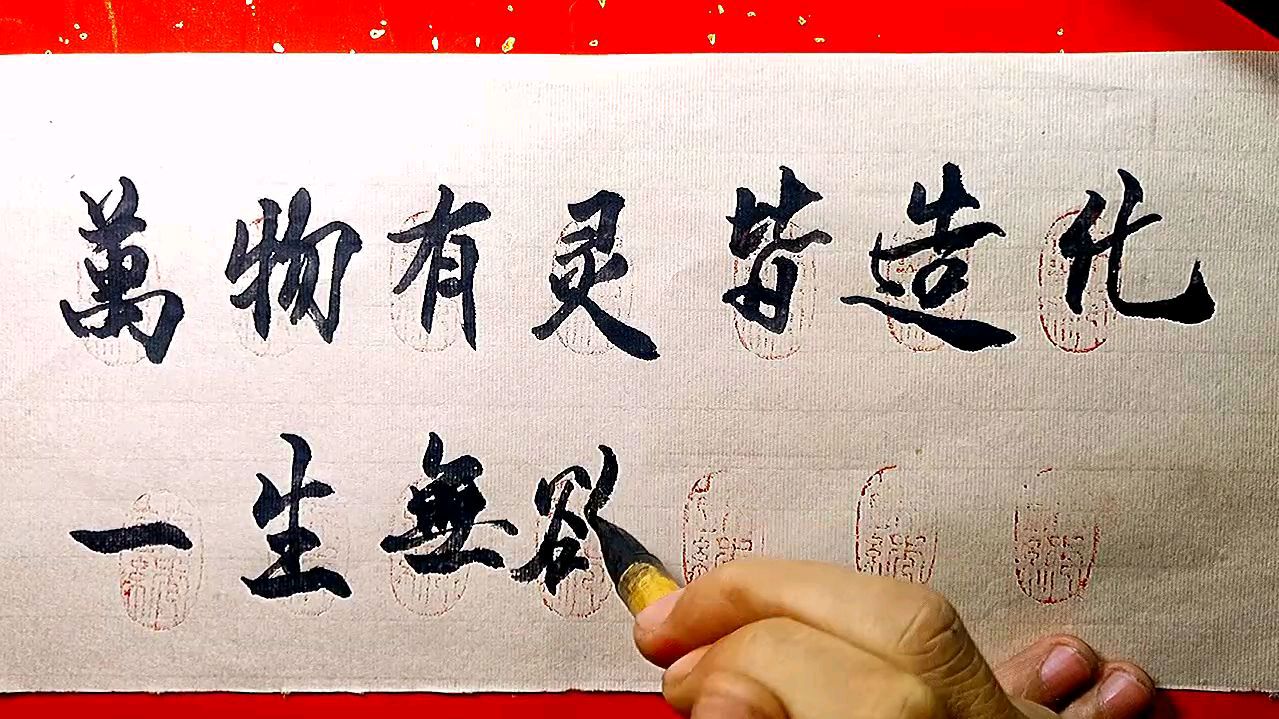 萬物有灵皆造化
一生無欲